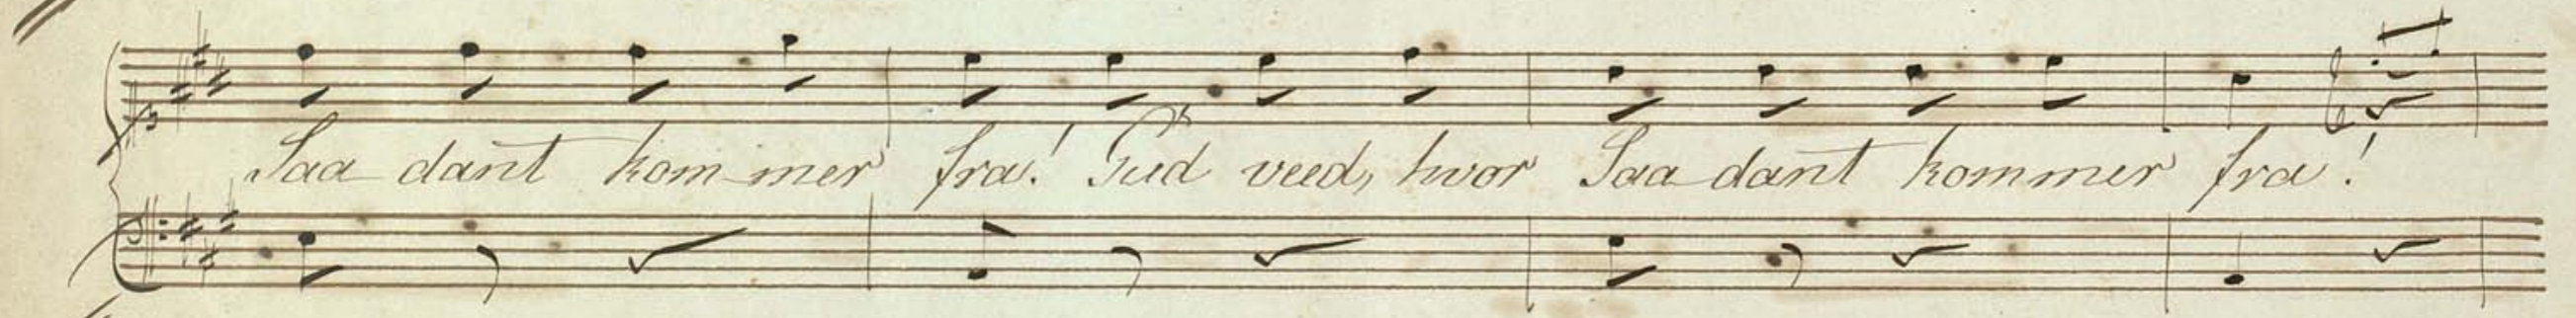 Saa dant kom-mer fra! Gud veed, hvor Saa dant kommer fra!